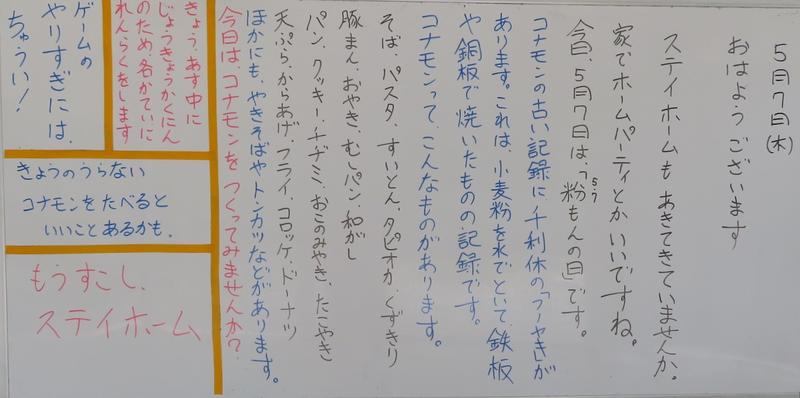 5月7日(木)
おはようございます
ステイホームもあきてきていませんか。
家でホームパーティとかいいですね。
今日、5月7日は、「粉もんの日」です。
コナモンの古い記録に千利休の「フノやき」が
あります。これは、小麦粉を水でといて、鉄板
や銅板で焼いたものの記録です。
コナモンって、こんなものがあります。
そば、パスタ、すいとん、タピオカ、くずきり
豚まん、おやき、むしパン、和がし
パン、クッキー、チヂミ、おこのみやき、たこやき
天ぷら、からあげ、フライ、コロッケ、ドーナツ
ほかにも、やきそばやトンカツなどがあります。
今日は、コナモンをつくってみませんか？
きょう、あす中に
じょうきょうかくにん
のため、各かていに
れんらくをします
ゲームの
やりすぎには、
ちゅうい！
きょうのうらない
コナモンをたべると
いいことあるかも。
もうすこし、
ステイホーム